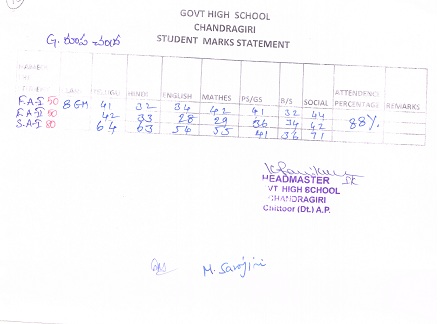 GOVT HIGH SCHOOL
CHANDRAGIRI
G. రూప చంద్ STUDENT MARKS STATEMENT
HINDI ENGLISH MATHES PS/GS B/S SOCIAL ATTENDENCE PERCENTAGE REMARKS
F.A-I 50 8 GM 41 32 34 42 41 32 44 88%
42 33 28 29 36 34 42
S.A-I 80 64 63 54 55 41 36 71
HEADMASTER
VT HIGH SCHOOL
CHANDRAGIRI
Chittoor (Dt.) A.P.
M. Sarojini